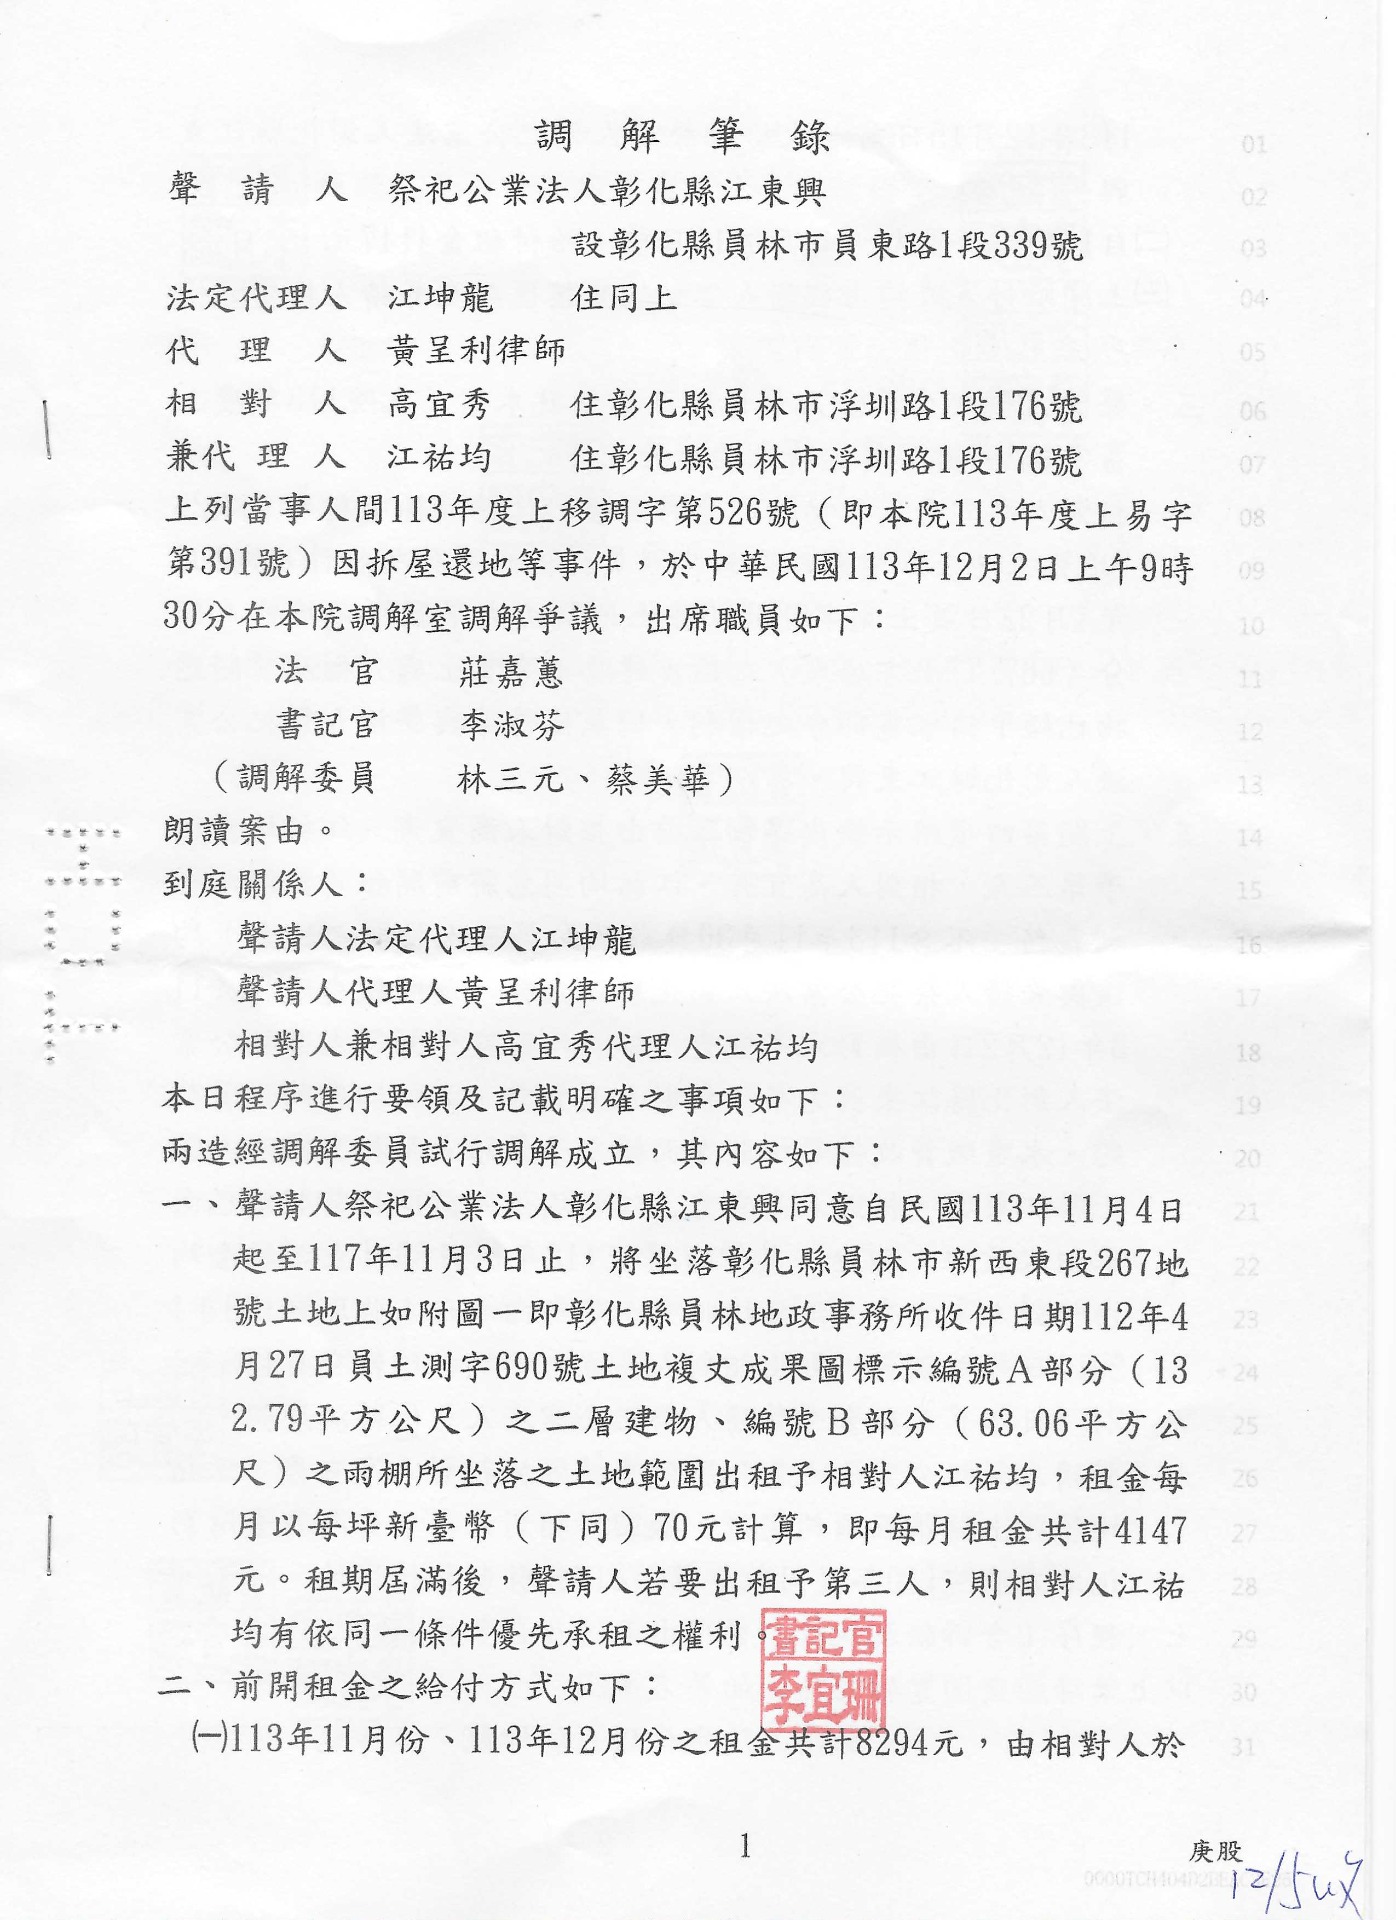 調解筆錄
01
聲請人 祭祀公業法人彰化縣江東興
02
設彰化縣員林市員東路1段339號
03
法定代理人 江坤龍 住同上
04
代理人 黃呈利律師
05
相對人 高宜秀 住彰化縣員林市浮圳路1段176號
06
兼代理人 江祐均 住彰化縣員林市浮圳路1段176號
07
上列當事人間113年度上移調字第526號（即本院113年度上易字
08
第391號）因拆屋還地等事件，於中華民國113年12月2日上午9時
09
30分在本院調解室調解爭議，出席職員如下：
10
法官 莊嘉蕙
11
書記官 李淑芬
12
（調解委員 林三元、蔡美華）
13
朗讀案由。
14
到庭關係人：
15
聲請人法定代理人江坤龍
16
聲請人代理人黃呈利律師
17
相對人兼相對人高宜秀代理人江祐均
18
本日程序進行要領及記載明確之事項如下：
19
兩造經調解委員試行調解成立，其內容如下：
20
一、聲請人祭祀公業法人彰化縣江東興同意自民國113年11月4日
21
起至117年11月3日止，將坐落彰化縣員林市新西東段267地
22
號土地上如附圖一即彰化縣員林地政事務所收件日期112年4
23
月27日員土測字690號土地複丈成果圖標示編號A部分（13
24
2.79平方公尺）之二層建物、編號B部分（63.06平方公
25
尺）之雨棚所坐落之土地範圍出租予相對人江祐均，租金每
26
月以每坪新臺幣（下同）70元計算，即每月租金共計4147
27
元。租期屆滿後，聲請人若要出租予第三人，則相對人江祐
28
均有依同一條件優先承租之權利。
29
書記官
李宜珊
二、前開租金之給付方式如下：
30
㈠113年11月份、113年12月份之租金共計8294元，由相對人於
31
1
庚股
12/5